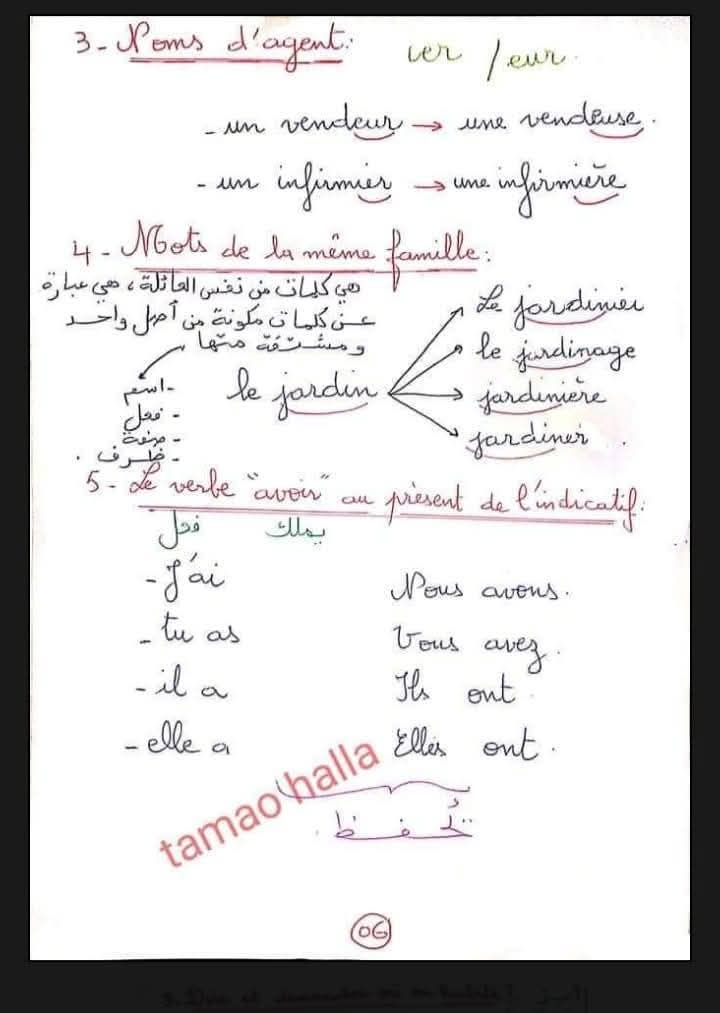 3 - Noms d'agent: ier / eur.
- un vendeur → une vendeuse.
- un infirmier → une infirmière
4 - Mots de la même famille:
هي كلمات من نفس العائلة، هي عبارة
عن كلمات مكونة من أصل واحد
و مشتقة منها
le jardin
Le jardinier
le jardinage
jardinière
jardiner.
- اسم
- فعل
- صفة
- ظرف.
5 - Le verbe "avoir" au présent de l'indicatif:
فعل يملك
- J'ai
- tu as
- il a
- elle a
Nous avons.
Vous avez.
Ils ont.
Elles ont.
tamao halla
تُحفظ.
06